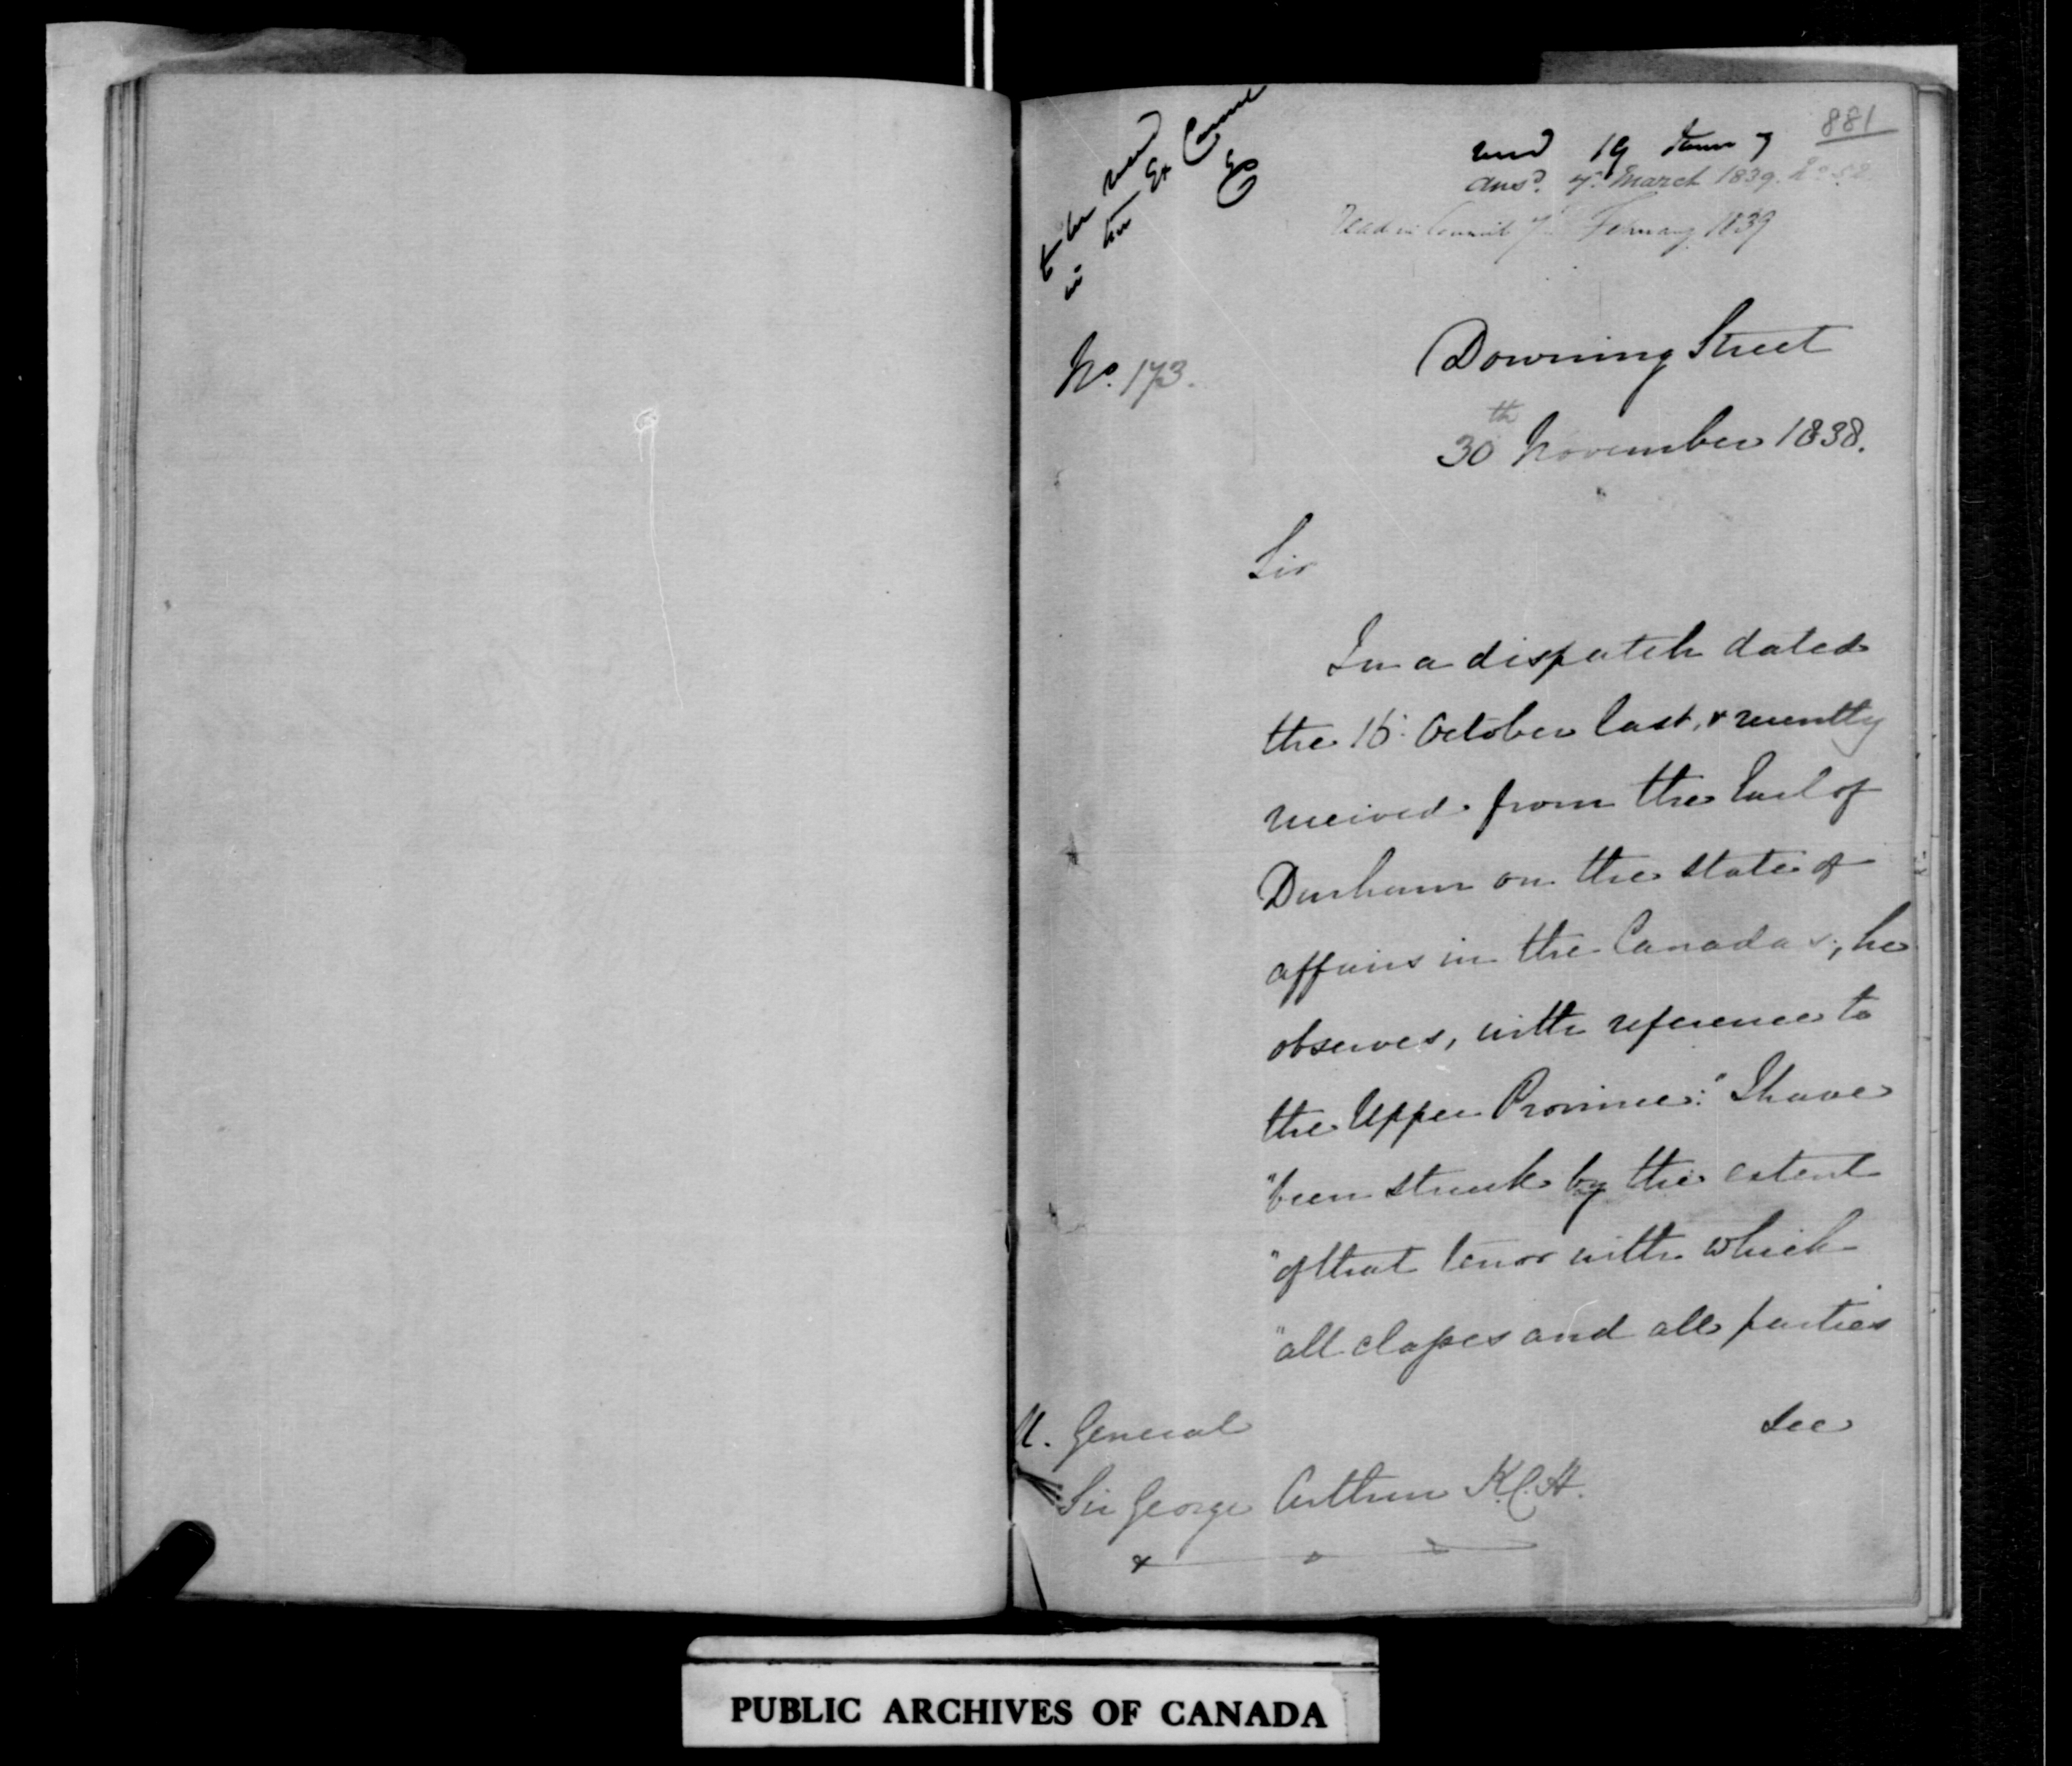 881
to be read
in the Ex Council
recd 19 Jany
ansd. 7 March 1839. No 52
Read in Council 7th February 1839
No. 173.
Downing Street
30th November 1838.
Sir
In a dispatch dated
the 16. October last, & recently
received from the Earl of
Durham on the state of
affairs in the Canadas, he
observes, with reference to
the Upper Province: "I have
"been struck by the extent
"of that terror with which
"all classes and all parties
see
M. General
Sir George Arthur K.C.H.
PUBLIC ARCHIVES OF CANADA